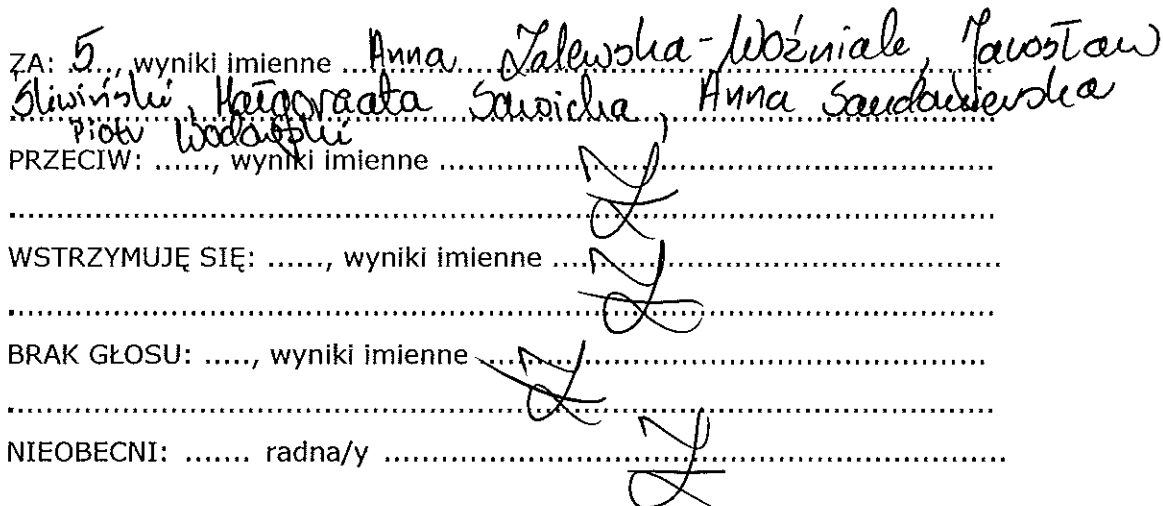 ZA: 5, wyniki imienne Anna Zalewska-Woźniak, Jarosław
Śliwiński, Małgorzata Sawicka, Anna Sandakierska
Piotr
PRZECIW: ......, wyniki imienne ..........
WSTRZYMUJĘ SIĘ: ......, wyniki imienne ..........
BRAK GŁOSU: ....., wyniki imienne ..........
NIEOBECNI: ....... radna/y ..........